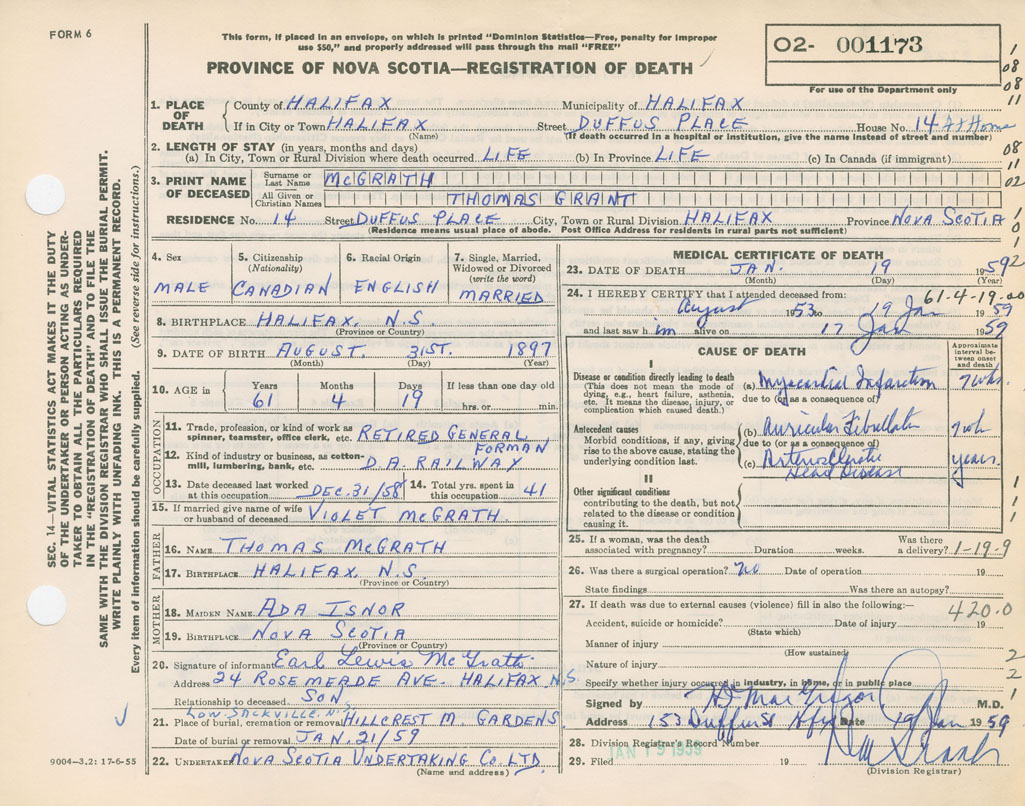 FORM 6
This form, if placed in an envelope, on which is printed "Dominion Statistics—Free, penalty for improper
use $50," and properly addressed will pass through the mail "FREE"
PROVINCE OF NOVA SCOTIA—REGISTRATION OF DEATH
02- 001173
For use of the Department only
1
08
08
11
08
11
02
1
0
1
SEC. 14—VITAL STATISTICS ACT MAKES IT THE DUTY
OF THE UNDERTAKER OR PERSON ACTING AS UNDER-
TAKER TO OBTAIN ALL THE PARTICULARS REQUIRED
IN THE "REGISTRATION OF DEATH" AND TO FILE THE
SAME WITH THE DIVISION REGISTRAR WHO SHALL ISSUE THE BURIAL PERMIT.
WRITE PLAINLY WITH UNFADING INK. THIS IS A PERMANENT RECORD.
Every item of information should be carefully supplied. (See reverse side for instructions.)
1. PLACE OF DEATH
County of HALIFAX Municipality of HALIFAX
If in City or Town HALIFAX Street DUFFUS PLACE House No. 14 At Home
(Name) (If death occurred in a hospital or institution, give the name instead of street and number)
2. LENGTH OF STAY (in years, months and days)
(a) In City, Town or Rural Division where death occurred LIFE (b) In Province LIFE (c) In Canada (if immigrant)
3. PRINT NAME OF DECEASED
Surname or Last Name McGRATH
All Given or Christian Names THOMAS GRANT
RESIDENCE No. 14 Street DUFFUS PLACE City, Town or Rural Division HALIFAX Province NOVA SCOTIA
(Residence means usual place of abode. Post Office Address for residents in rural parts not sufficient)
4. Sex
MALE
5. Citizenship (Nationality)
CANADIAN
6. Racial Origin
ENGLISH
7. Single, Married, Widowed or Divorced (write the word)
MARRIED
8. BIRTHPLACE HALIFAX, N.S.
(Province or Country)
9. DATE OF BIRTH AUGUST. 31ST. 1897
(Month) (Day) (Year)
10. AGE in
Years 61
Months 4
Days 19
If less than one day old
hrs. or min.
OCCUPATION
11. Trade, profession, or kind of work as
spinner, teamster, office clerk, etc. RETIRED GENERAL
FORMAN
12. Kind of industry or business, as cotton-
mill, lumbering, bank, etc. D.A. RAILWAY
13. Date deceased last worked
at this occupation DEC. 31/58
14. Total yrs. spent in
this occupation 41
15. If married give name of wife
or husband of deceased VIOLET McGRATH
FATHER
16. NAME THOMAS McGRATH
17. BIRTHPLACE HALIFAX, N.S.
(Province or Country)
MOTHER
18. MAIDEN NAME ADA ISNOR
19. BIRTHPLACE NOVA SCOTIA
(Province or Country)
20. Signature of informant Earl Lewis McGrath
Address 24 ROSEMEADE AVE. HALIFAX N.S.
Relationship to deceased SON
LOW. SACKVILLE. N.S.
21. Place of burial, cremation or removal HILLCREST M. GARDENS
Date of burial or removal JAN. 21/59
22. UNDERTAKER NOVA SCOTIA UNDERTAKING CO. LTD.
(Name and address)
9004—3.2: 17-6-55
MEDICAL CERTIFICATE OF DEATH
23. DATE OF DEATH JAN. 19 1959 2
(Month) (Day) (Year)
24. I HEREBY CERTIFY that I attended deceased from: 61-4-19-00
August 1953 to 19 Jan 1959
and last saw him alive on 17 Jan 1959
CAUSE OF DEATH
Approximate interval between onset and death
I
Disease or condition directly leading to death
(This does not mean the mode of
dying, e.g., heart failure, asthenia,
etc. It means the disease, injury, or
complication which caused death.)
(a) Myocardial Infarction 7 wks.
due to (or as a consequence of)
Antecedent causes
Morbid conditions, if any, giving
rise to the above cause, stating the
underlying condition last.
(b) Auricular Fibrillation 7 wk
due to (or as a consequence of)
(c) Arteriosclerotic years.
Head Disease
II
Other significant conditions
contributing to the death, but not
related to the disease or condition
causing it.
1
1
1
25. If a woman, was the death
associated with pregnancy? Duration weeks. Was there
a delivery? 1-19-9
26. Was there a surgical operation? no Date of operation 19
State findings Was there an autopsy?
27. If death was due to external causes (violence) fill in also the following:—
420.0
Accident, suicide or homicide? Date of injury 19
(State which)
Manner of injury
(How sustained)
2
Nature of injury
2
Specify whether injury occurred in industry, in home, or in public place
1
Signed by H D MacGregor M.D.
Address 153 Duffus St Hfx Date 19 Jan 1959
28. Division Registrar's Record Number
JAN 19 1959
29. Filed 19
(Division Registrar)